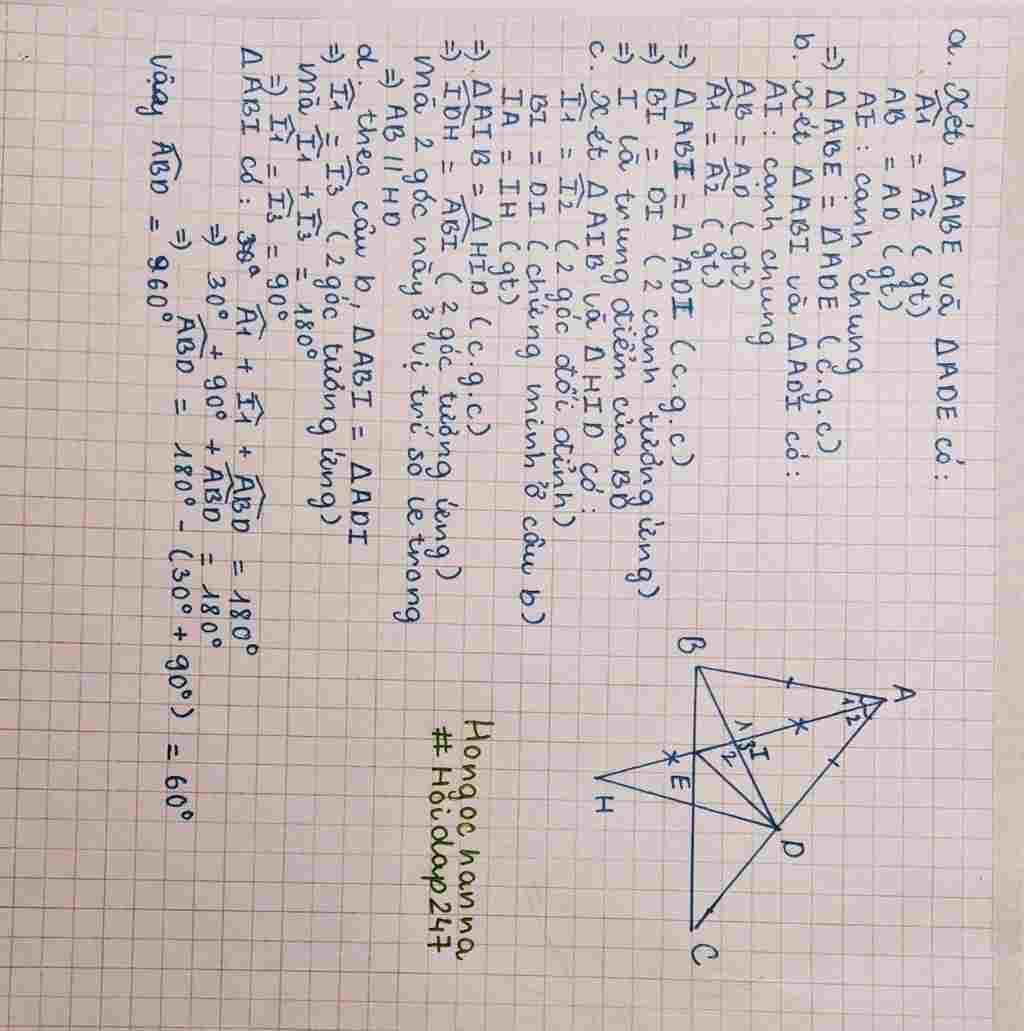 a. Xét ΔABE và ΔADE có:
Â1 = Â2 (gt)
AB = AD (gt)
AI: cạnh chung
=) ΔABE = ΔADE (c.g.c)
b. Xét ΔABI và ΔADI có:
AI: cạnh chung
AB = AD (gt)
Â1 = Â2 (gt)
=) ΔABI = ΔADI (c.g.c)
=) BI = DI (2 cạnh tương ứng)
=) I là trung điểm của BD
c. Xét ΔAIB và ΔHID có:
Î1 = Î2 (2 góc đối đỉnh)
BI = DI (chứng minh ở câu b)
IA = IH (gt)
=) ΔAIB = ΔHID (c.g.c)
=) IDH = ABI (2 góc tương ứng)
mà 2 góc này ở vị trí so le trong
=) AB // HD
d. theo câu b, ΔABI = ΔADI
=) Î1 = Î3 (2 góc tương ứng)
mà Î1 + Î3 = 180°
=) Î1 = Î3 = 90°
ΔABI có: Â1 + Î1 + ABD = 180°
=) 30° + 90° + ABD = 180°
=) ABD = 180° - (30° + 90°) = 60°
Vậy ABD = 960°
A
1 2
B
1 3 I
2
D
E
H
C
Hongochanna
# Hoidap247